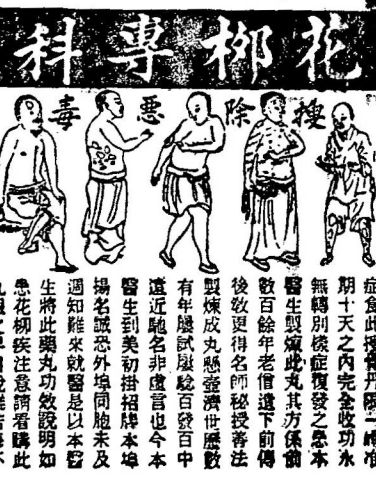 花柳專科
搜除惡毒
症食此搜骨丹
期十天之内完全收功永
無轉別樣症復發之患本
醫生製煉此丸其方係前
數百餘年老僧遺下前傳
後敎更得名師秘授善法
製煉成丸懸壺濟世歷數
有年屢試屢驗百發百中
遠近馳名非虛言也今本
醫生到美初掛招牌本埠
揚名誠恐外埠同胞未及
週知難來就醫是以本醫
生將此藥丸功效說明如
患花柳疾注意請看購此